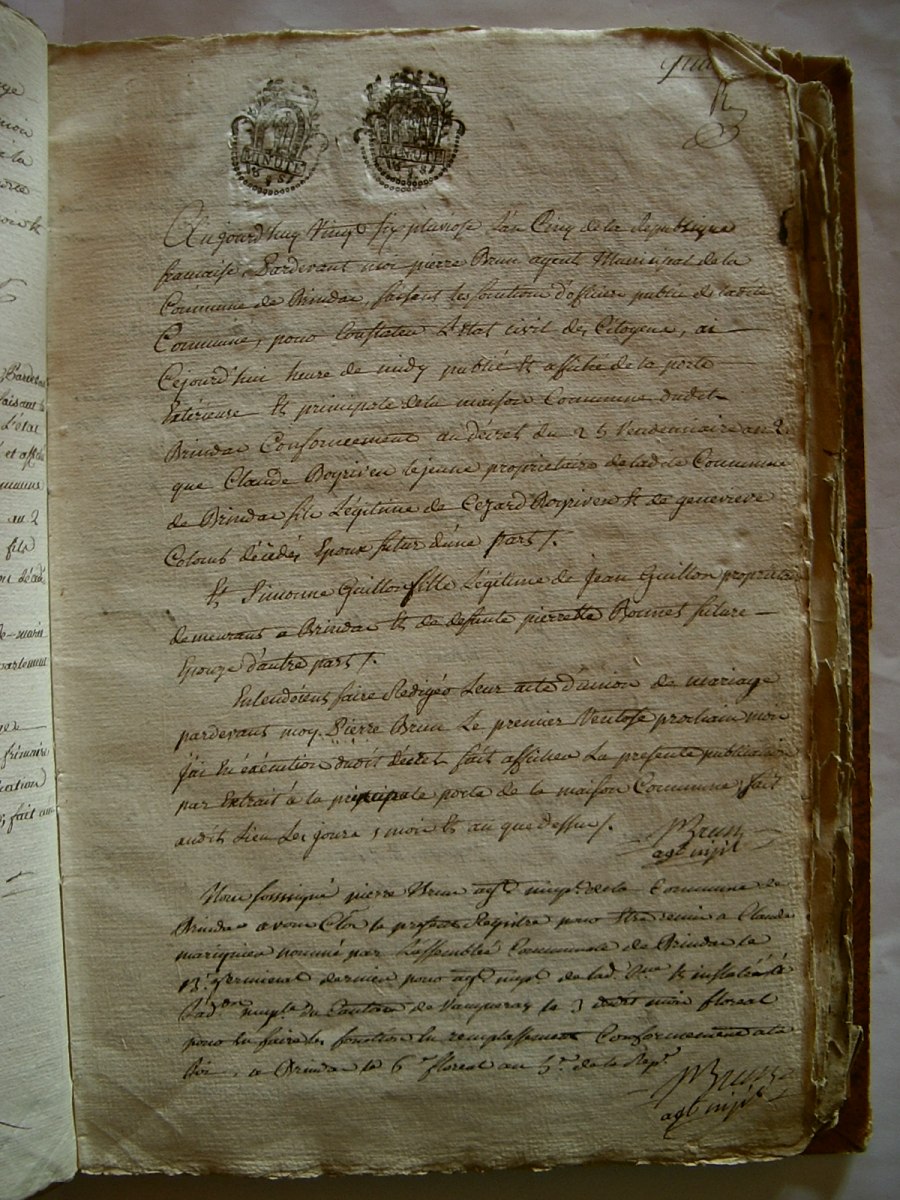 MINUTE
MINUTE
Aujourd'huy Vingt six pluviose L'an Cinq de la République
francaise, Pardevant moi pierre Brun agent Municipal de la
Commune de Brindas, faisant les fonctions d'officier public de ladite
Commune, pour Constater L'Etat civil des Citoyens, ai
Cejourd'hui heure de midy publié et affiché de la porte
Extérieure et principale de la maison Commune dudit
Brindas Conformement au décret du 25 Vendemiaire an 2
que Claude Bogriven le jeune propriétaire de ladite Commune
de Brindas fils Légitime de Cezard Bogriven et de genevieve
Colomb décédés Epoux futur d'une part /.
Et Simonne Guillon fille Légitime de Jean Guillon propriétaire
demeurant a Brindas et de defunte pierrette Bonnet future
Epouze d'autre part /.
Entendoient faire Rediger Leur acte d'union de mariage
pardevant moy Pierre Brun Le premier Ventose prochain
J'ai En éxécution dudit décret fait afficher La presente publication
par Extrait à la principale porte de la maison Commune, fait
audit Lieu Les jours, mois et an que dessus /.
PBrun
agt mpl
Nous soussigné pierre Brun agt mpl de la Commune de
Brindas avons Clos le present Registre pour Etre remis a Claude
marignier nommé par L'assemblée Communale de Brindas le
13 germinal dernier pour agt mpl de lad. et installé
Lad. mple du Canton de Vaugneray le 3 dudit mois floreal
pour En faire les fonctions En remplassement Conformement a la
Loi, a Brindas le 6 floreal an 5 de la Rep.
PBrun
agt mpl